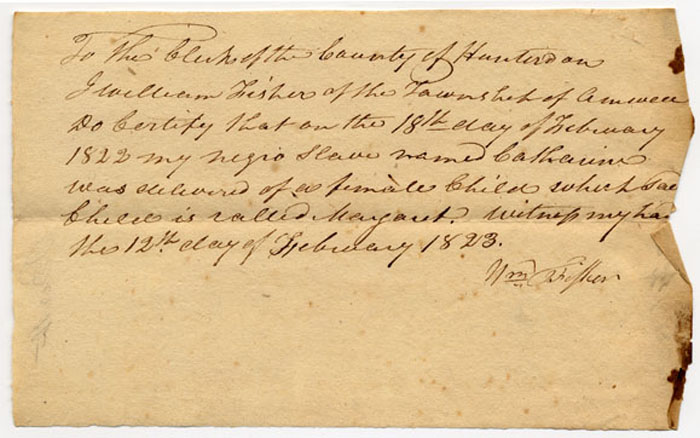 To the Clerk of the County of Hunterdon
I William Fisher of the Township of Amwell
Do Certify that on the 18th day of February
1822 my negro Slave named Catharine
was delivered of a female Child which Said
Child is called Margaret. Witness my hand
the 12th day of February 1823.
Wm Fisher